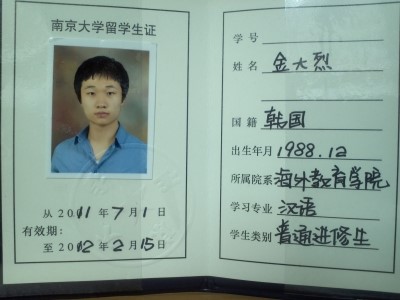 南京大学留学生证
从 2011 年 7 月 1 日
有效期:
至 2012 年 2 月 15 日
学 号
姓 名 金大烈
国 籍 韩国
出生年月 1988.12
所属院系 海外教育学院
学习专业 汉语
学生类别 普通进修生